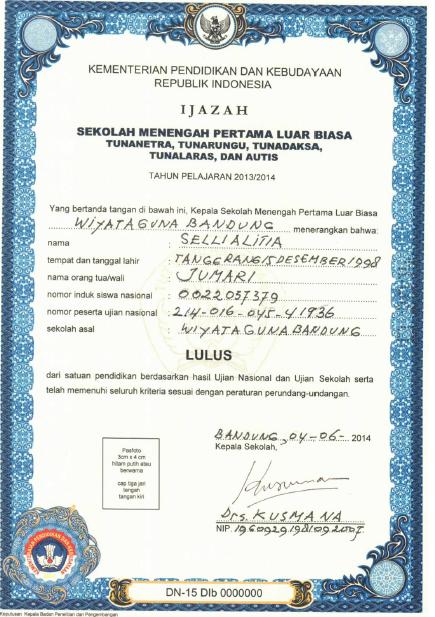 KEMENTERIAN PENDIDIKAN DAN KEBUDAYAAN
REPUBLIK INDONESIA
IJAZAH
SEKOLAH MENENGAH PERTAMA LUAR BIASA
TUNANETRA, TUNARUNGU, TUNADAKSA,
TUNALARAS, DAN AUTIS
TAHUN PELAJARAN 2013/2014
Yang bertanda tangan di bawah ini, Kepala Sekolah Menengah Pertama Luar Biasa
WIYATAGUNA BANDUNG menerangkan bahwa:
nama : SELLIALITIA
tempat dan tanggal lahir : TANGGERANG 15 DESEMBER 1998
nama orang tua/wali : JUMARI
nomor induk siswa nasional : 0022057379
nomor peserta ujian nasional : 214-016-045-41936
sekolah asal : WIYATAGUNA BANDUNG
LULUS
dari satuan pendidikan berdasarkan hasil Ujian Nasional dan Ujian Sekolah serta
telah memenuhi seluruh kriteria sesuai dengan peraturan perundang-undangan.
BANDUNG, 04-06- 2014
Kepala Sekolah,
Pasfoto
3cm x 4 cm
hitam putih atau
berwarna
cap tiga jari
tengah
tangan kiri
Drs. KUSMANA
NIP.
DN-15 DIb 0000000
Keputusan Kepala Badan Penelitian dan Pengembangan